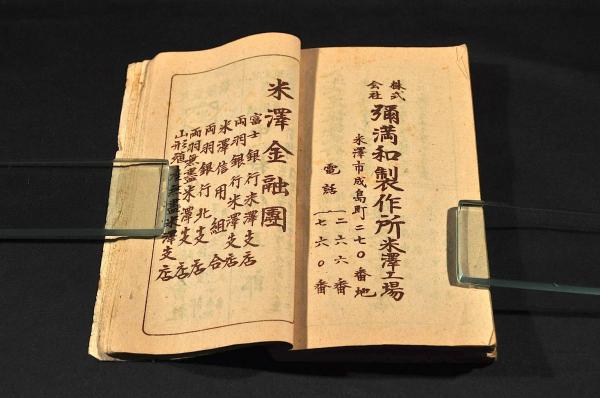 株式会社 彌満和製作所米澤工場
米澤市成島町二七〇番地
電話 二六六番
七六〇番
米澤金融團
富士銀行米澤支店
両羽銀行米澤支店
米澤信用組合
両羽銀行北支店
両羽無盡米澤支店
山形殖産無盡米澤支店